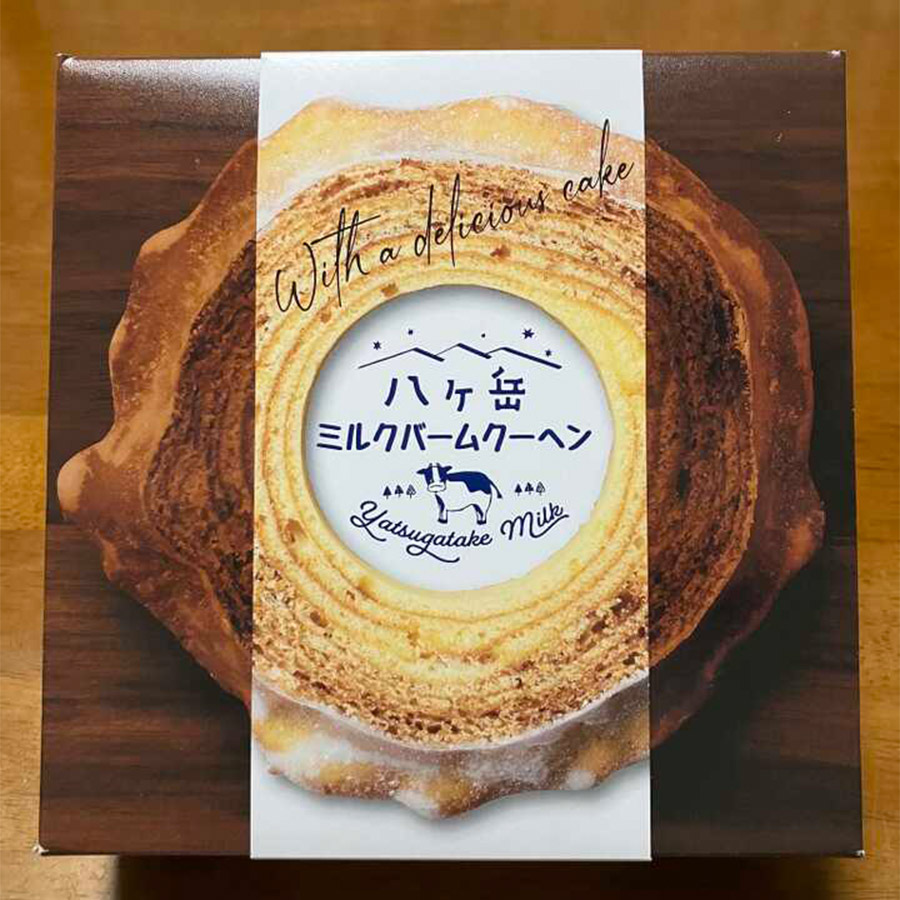 With a delicious cake
八ヶ岳
ミルクバームクーヘン
Yatsugatake Milk